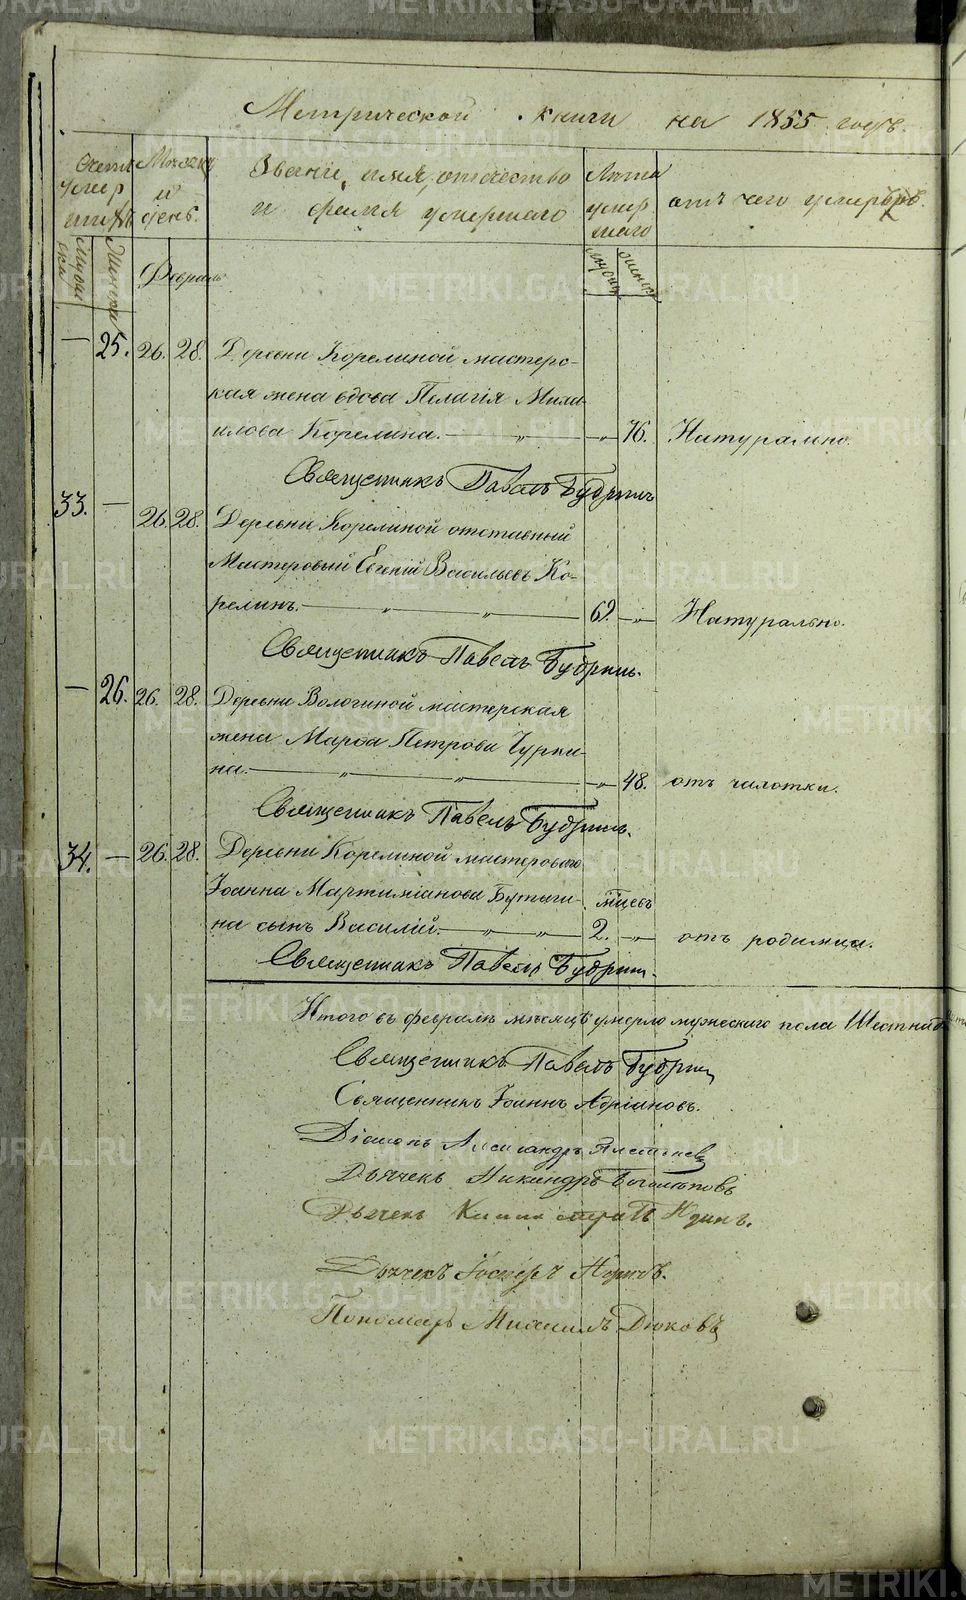 Метрической книги на 1855 годъ.
Счетъ умер шихъ
Мѣсяцъ и день.
Званіе, имя, отечество и фамилія умершаго
Лѣта умер шаго
отъ чего умеръ
Мужска
Женска
Февраль
— 25. 26. 28. Деревни Корелиной мастерс-
кая жена вдова Пелагія Михаи-
илова Корелина. — „ — „ — 76. Натурально.
Священникъ Павелъ Будринъ
33. — 26. 28. Деревни Корелиной отставный
Мастеровый Евгеній Васильевъ Ко-
релинъ. — „ — „ — 62. — „ — Натурально.
Священникъ Павелъ Будринъ.
— 26. 26. 28. Деревни Вологиной мастерская
жена Марфа Петрова Чурки-
на. — „ — „ — „ — 48. отъ чахотки.
Священникъ Павелъ Будринъ.
34. — 26. 28. Деревни Корелиной мастероваго
Іоанна Мартиміанова Бутыги- мѣцевъ
на сынъ Василій. — „ — „ — 2. — „ — отъ родимца.
Священникъ Павелъ Будринъ.
Итого въ февралѣ мѣсяцѣ умерло мужескаго пола Шестнадцать
Священникъ Павелъ Будринъ
Священникъ Іоаннъ Адріановъ.
Діаконъ Александръ
Дьячекъ Никандръ Боголѣповъ
Дьячекъ
Дьячекъ
Пономарь Михаилъ Дюковъ
METRIKI.GASO-URAL.RU